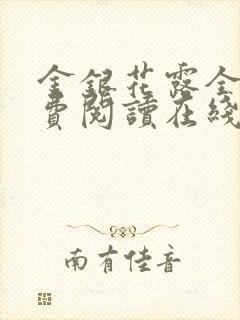 金銀花露全
費閱讀在綫
南有佳音